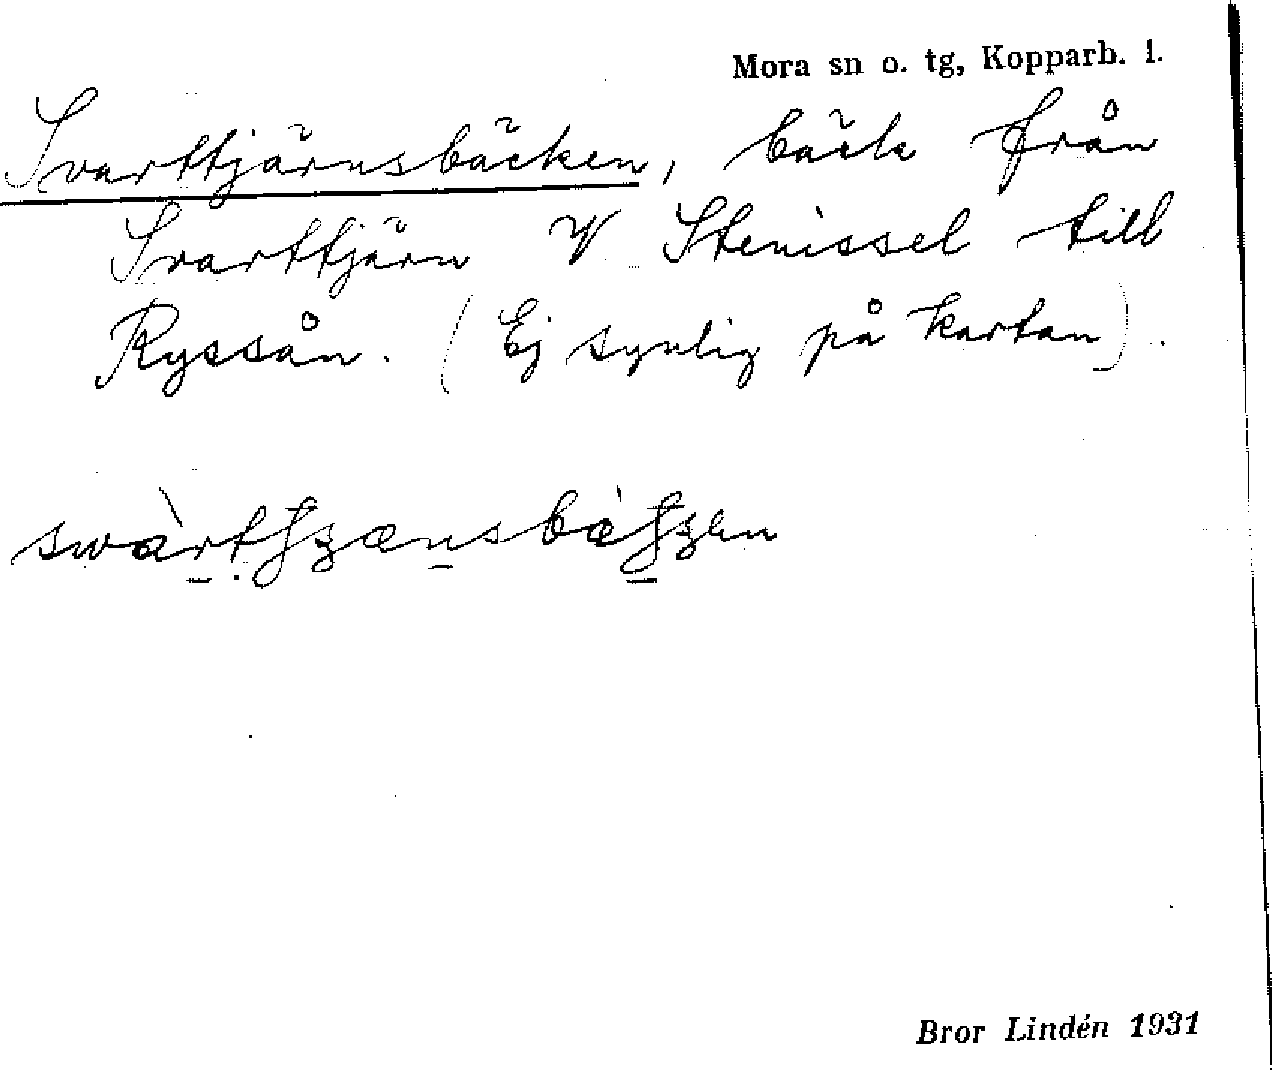 Mora sn o. tg, Kopparb. l.
Svarttjärnsbäcken, bäck från
Svarttjärn V Stenissel till
Ryssån. (Ej synlig på kartan).
Bror Lindén 1931